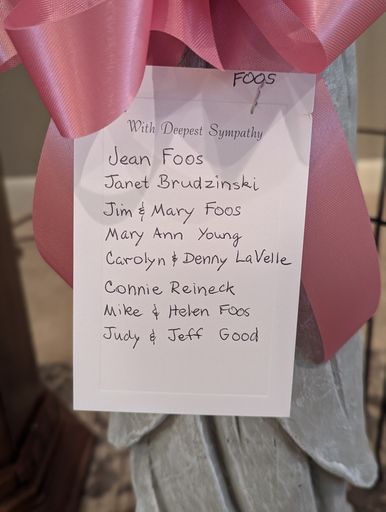 FOOS
With Deepest Sympathy
Jean Foos
Janet Brudzinski
Jim & Mary Foos
Mary Ann Young
Carolyn & Denny LaVelle
Connie Reineck
Mike & Helen Foos
Judy & Jeff Good